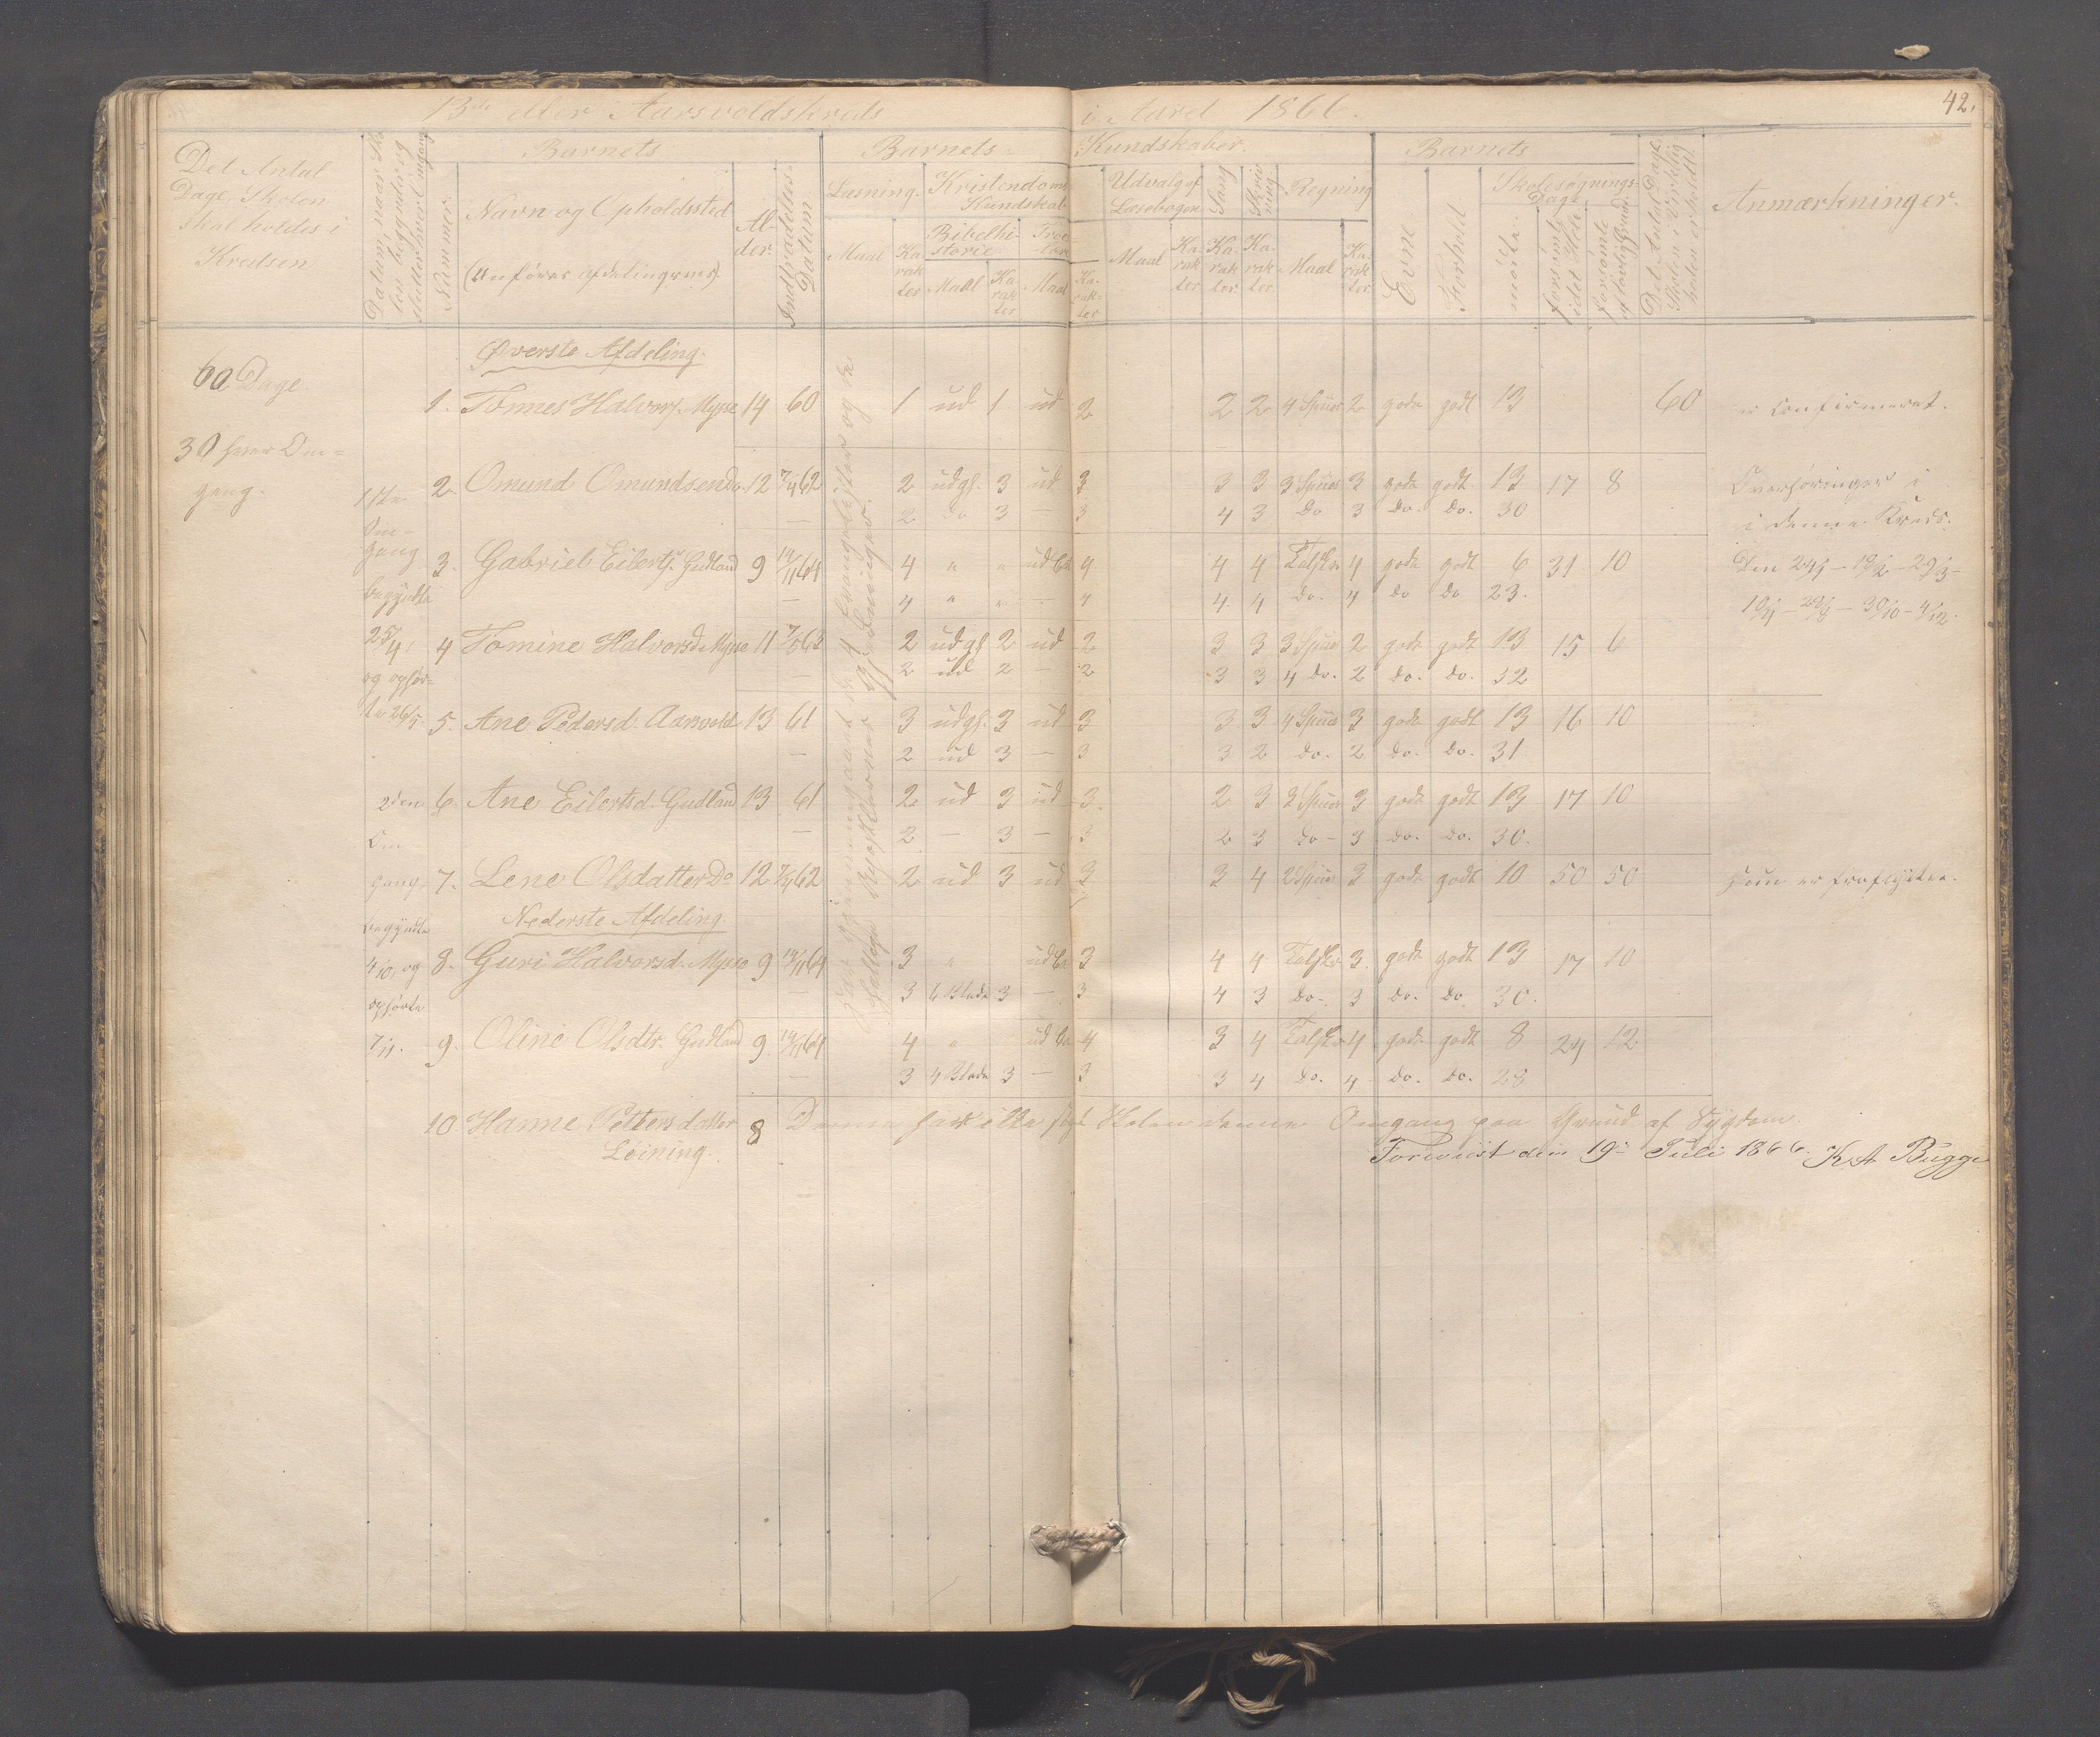 13de eller Aarsvoldskreds i Aaret 1866.
42.
Det Antal Dage, Skolen skal holdes i Kredsen
Datum, naar Skolen begynder og slutter hver Omgang
Nummer
Barnets
Navn og Opholdssted
(Anføres afdelingsviis).
Alder.
Indtrædelses Datum.
Barnets Kundskaber.
Læsning.
Maal
Karakter
Kristendoms Kundskab
Bibelhistorie
Maal
Karakter
Troeslære
Maal
Karakter
Udvalg af Læsebogen
Maal
Karakter
Sang
Karakter
Skrivning
Karakter.
Regning
Maal
Karakter.
Barnets
Evne
Forhold.
Skolesøgnings-Dage
mødte.
forsømte i det Hele
forsømte af lovlig Grund.
Det Antal Dage, Skolen i Virkelig heden er holdt.
Anmærkninger.
60 Dage.
30 hver Omgang.
Øverste Afdeling.
1. Tønnes Halvors. Mysse 14 60 1 ud 1 ud 2 2 2 4 Spiies 2 gode godt 13 60 er Confirmeret.
1ste Omgang begyndte 25/4, og ophørte 26/5
2. Omund Omundsen Do. 12 7/4 62 2 udgl. 3 ud 3 3 3 3 Spiies 3 gode godt 13 17 8
2 do 3 — 3 4 3 Do 3 Do. Do. 30
Overhøringer i
i denne Kreds.
3. Gabriel Eilerts. Gudland 9 14/11 64 4 " " ud 4 4 4 4 gode godt 6 31 10
4 " " — 4 4 4 do. 4 do do 23.
4 Tomine Halvorsd. Mysse 11 2 udgl 2 ud 2 3 3 3 Spiies 2 gode godt 13 15 6
2 ud 2 — 2 3 3 4 do. 2 do. do. 32
5. Ane Pedersd. Aarsvold 13 61 3 udgl. 3 ud 3 3 3 4 Spiies 3 gode godt 13 16 10
— 2 ud 3 — 3 3 2 do. 2 do. do. 31
2den Omgang begyndte 4/10, og ophørte 7/11.
6. Ane Eilertsd. Gudland 13 61 2 ud 3 ud 3. 2 3 2 Spiies 3 gode godt 13 17 10
— 2 — 3 — 3 2 3 do — 3 do. do. 30.
7. Lene Olsdatter Do 12 7/4 62 2 ud 3 ud 3 3 4 2 Spiies 3 gode godt 10 50 50 Hun er fraflyttet.
Nederste Afdeling.
8. Guri Halvorsd. Mysse 9 14/11 64 3 " ud 3 4 4 3. gode godt 13 17 10
— 3 6 Blade 3 — 3 4 3 do. 3 do. do. 30.
9. Oline Olsdtr. Gudland 9 14/11 64 4 " ud 4 3 4 4 gode godt 8 24 12
— 3 4 Blade 3 — 3 3 4 do. 4 do. do. 28
10. Hanne Pettersdatter 8 Denne har ikke søgt Skolen denne Omgang paa Grund af Sygdom.
Leining.
Foreviist den 19de Juli 1866. K A Bugge